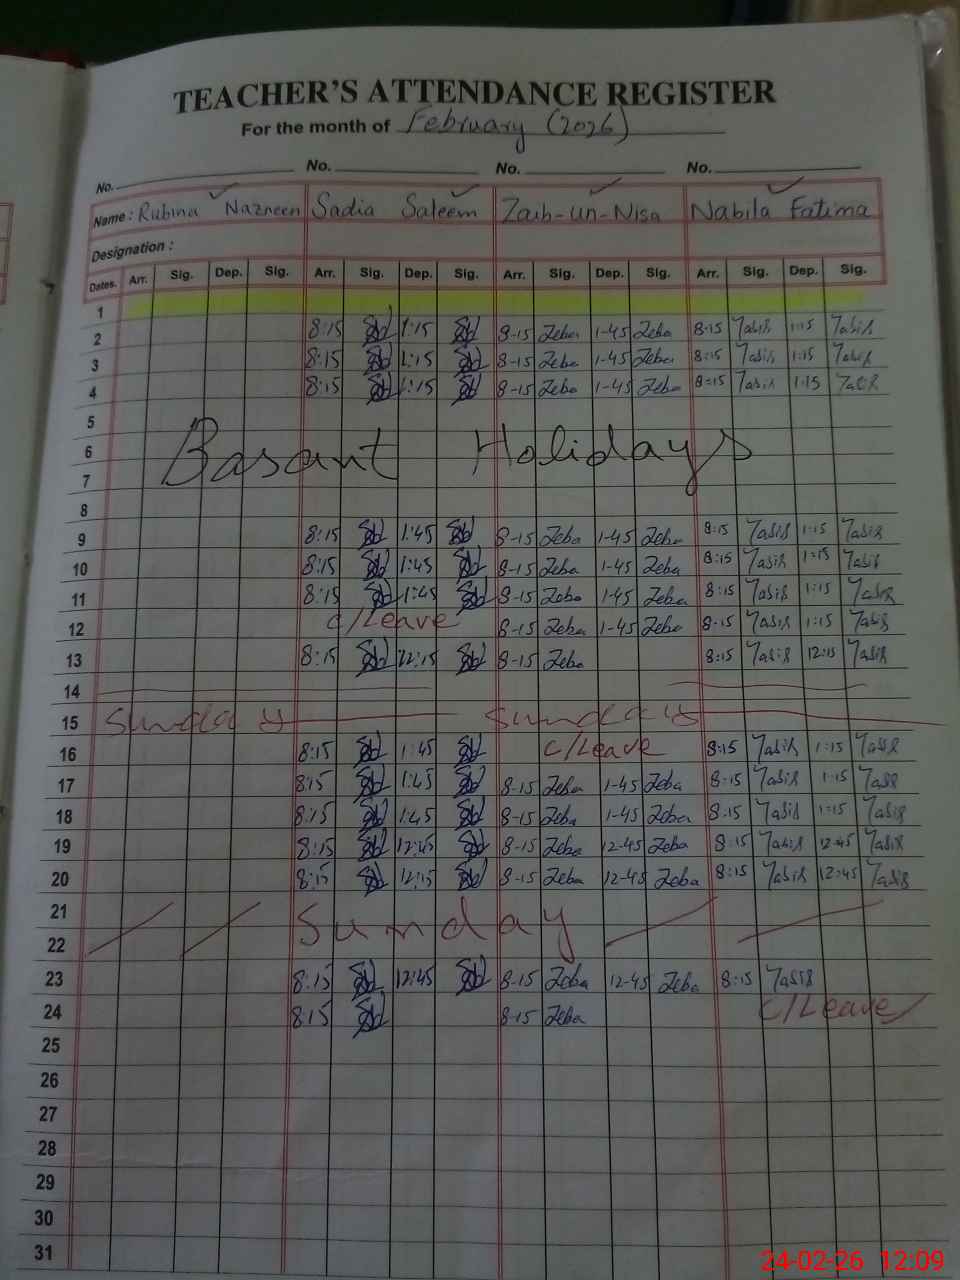 TEACHER'S ATTENDANCE REGISTER
For the month of February (2026)
No. No. No. No.
Name: Rubina Nazneen Sadia Saleem Zaib-un-Nisa Nabila Fatima
Designation :
Dates. Arr. Sig. Dep. Sig. Arr. Sig. Dep. Sig. Arr. Sig. Dep. Sig. Arr. Sig. Dep. Sig.
1
2 8:15 1:15 8-15 Zeba 1-45 Zeba 8:15 1:15
3 8:15 1:15 8-15 Zeba 1-45 Zeba 8:15 1:15
4 8:15 1:15 8-15 Zeba 1-45 Zeba 8:15 1:15
5
6 Basant Holidays
7
8
9 8:15 1:45 8-15 Zeba 1-45 Zeba 8:15 1:15
10 8:15 1:45 8-15 Zeba 1-45 Zeba 8:15 1:15
11 8:15 1:45 8-15 Zeba 1-45 Zeba 8:15 1:15
12 C/Leave 8-15 Zeba 1-45 Zeba 8:15 1:15
13 8:15 12:15 8-15 Zeba 8:15 12:15
14
15 Sunday Sunday
16 8:15 1:45 C/Leave 8:15 1:15
17 8:15 1:45 8-15 Zeba 1-45 Zeba 8:15 1:15
18 8:15 1:45 8-15 Zeba 1-45 Zeba 8:15 1:15
19 8:15 12:45 8-15 Zeba 12-45 Zeba 8:15 12-45
20 8:15 12:15 8-15 Zeba 12-45 Zeba 8:15 12:45
21
22 Sunday
23 8:15 12:45 8-15 Zeba 12-45 Zeba 8:15
24 8:15 8-15 Zeba C/Leave
25
26
27
28
29
30
31
24-02-26 12:09